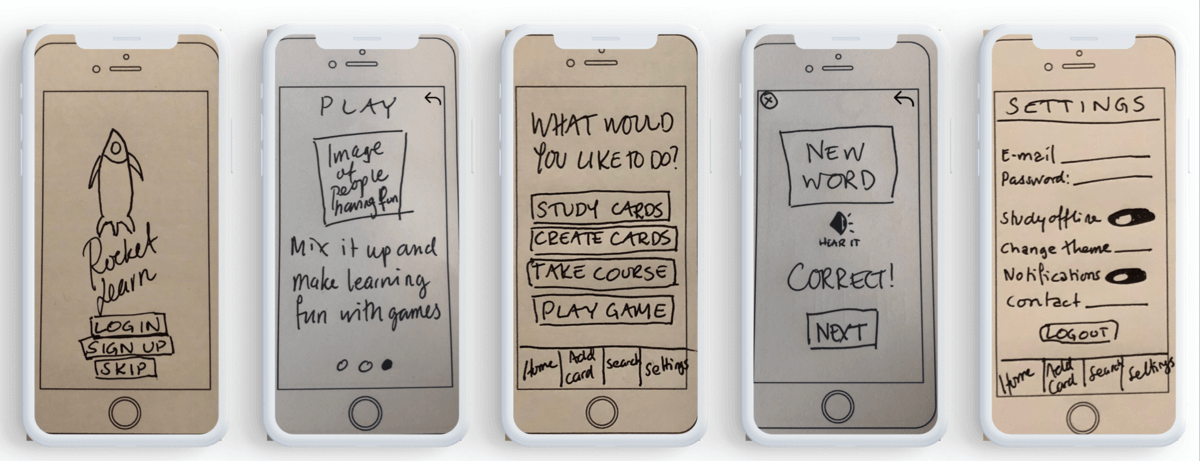 Rocket
Learn
LOGIN
SIGN UP
SKIP
PLAY
Image
of
people
having fun
Mix it up and
make learning
fun with games
WHAT WOULD
YOU LIKE TO DO?
STUDY CARDS
CREATE CARDS
TAKE COURSE
PLAY GAME
Home Add card Search Settings
NEW
WORD
HEAR IT
CORRECT!
NEXT
SETTINGS
E-mail
Password:
Study offline
Change theme
Notifications
Contact
LOGOUT
Home Add Card Search Settings